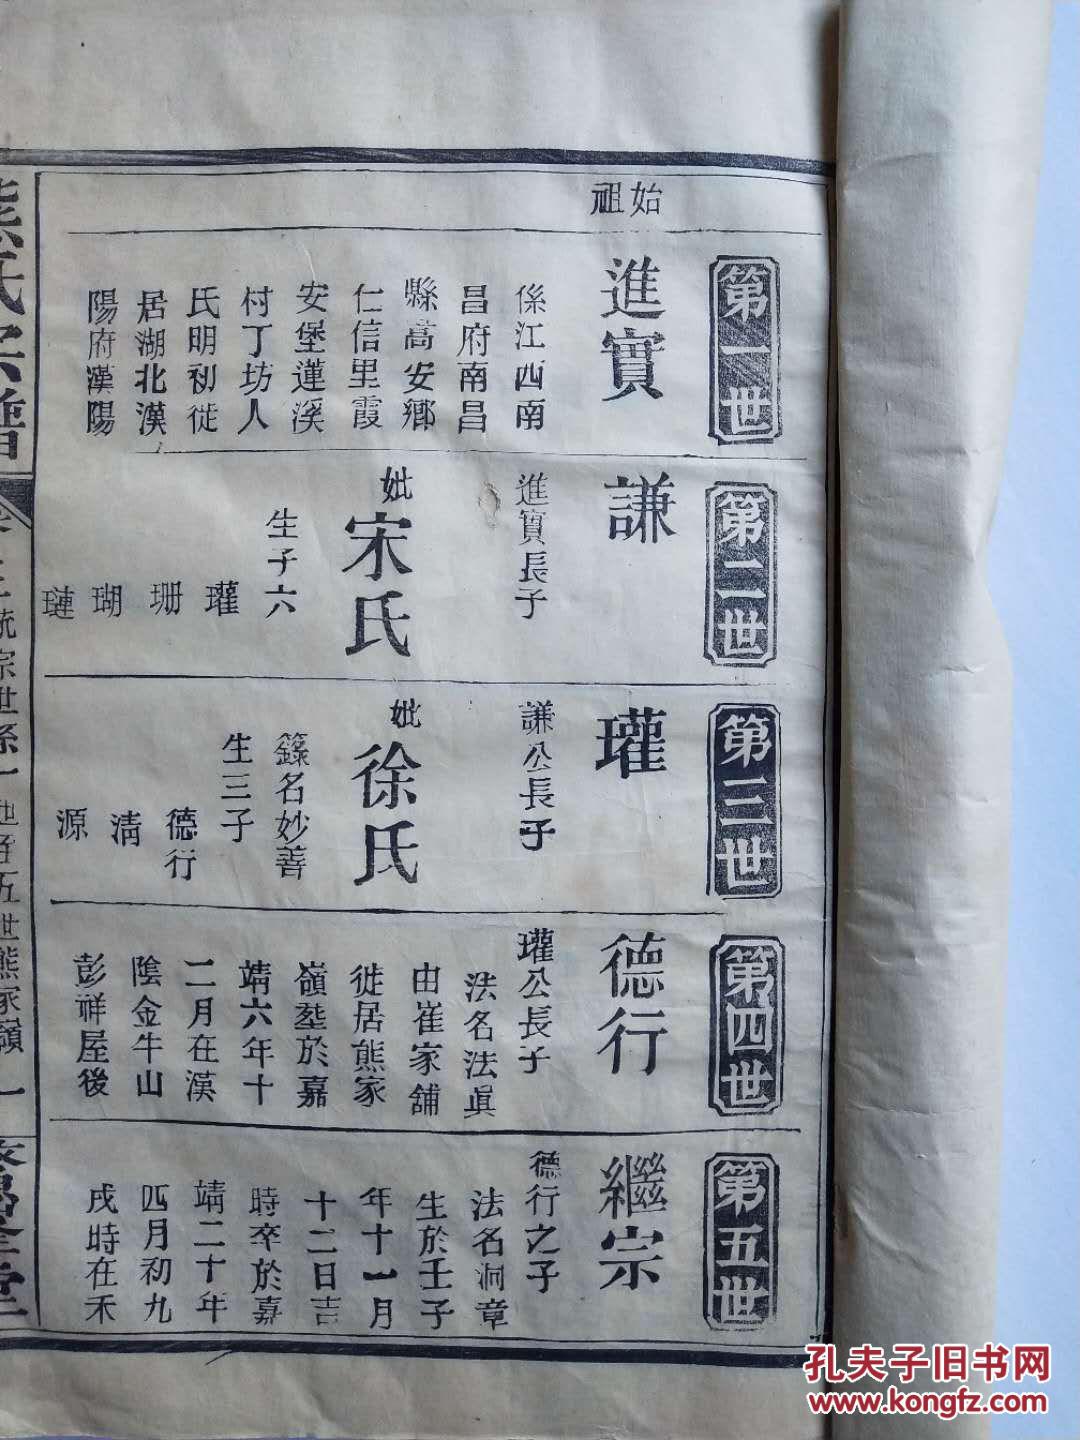 第一世
始祖
進實
係江西南
昌府南昌
縣高安鄉
仁信里霞
安堡蓮溪
村丁坊人
氏明初徙
居湖北漢
陽府漢陽
第二世
謙
進實長子
妣
宋氏
生子六
瓘
珊
瑚
璉
第三世
瓘
謙公長子
妣
徐氏
籙名妙善
生三子
德行
清
源
第四世
德行
瓘公長子
法名法眞
由崔家舖
徙居熊家
嶺塟於嘉
靖六年十
二月在漢
陰金牛山
彭祥屋後
第五世
繼宗
德行之子
法名洞章
生於壬子
年十一月
十二日吉
時卒於嘉
靖二十年
四月初九
戌時在禾
熊氏宗譜
統宗世系
五世熊家嶺 一
孔夫子旧书网
www.kongfz.com